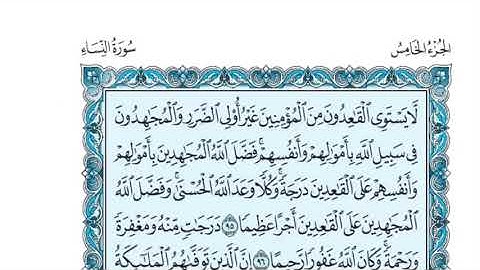 الجزء الخامس
سورة النساء
لَّا يَسْتَوِى ٱلْقَـٰعِدُونَ مِنَ ٱلْمُؤْمِنِينَ غَيْرُ أُو۟لِى ٱلضَّرَرِ وَٱلْمُجَـٰهِدُونَ
فِى سَبِيلِ ٱللَّهِ بِأَمْوَٰلِهِمْ وَأَنفُسِهِمْ ۚ فَضَّلَ ٱللَّهُ ٱلْمُجَـٰهِدِينَ بِأَمْوَٰلِهِمْ
وَأَنفُسِهِمْ عَلَى ٱلْقَـٰعِدِينَ دَرَجَةً ۚ وَكُلًّا وَعَدَ ٱللَّهُ ٱلْحُسْنَىٰ ۚ وَفَضَّلَ ٱللَّهُ
ٱلْمُجَـٰهِدِينَ عَلَى ٱلْقَـٰعِدِينَ أَجْرًا عَظِيمًا ٩٥ دَرَجَـٰتٍ مِّنْهُ وَمَغْفِرَةً
وَرَحْمَةً ۚ وَكَانَ ٱللَّهُ غَفُورًا رَّحِيمًا ٩٦ إِنَّ ٱلَّذِينَ تَوَفَّىٰهُمُ ٱلْمَلَـٰٓئِكَةُ